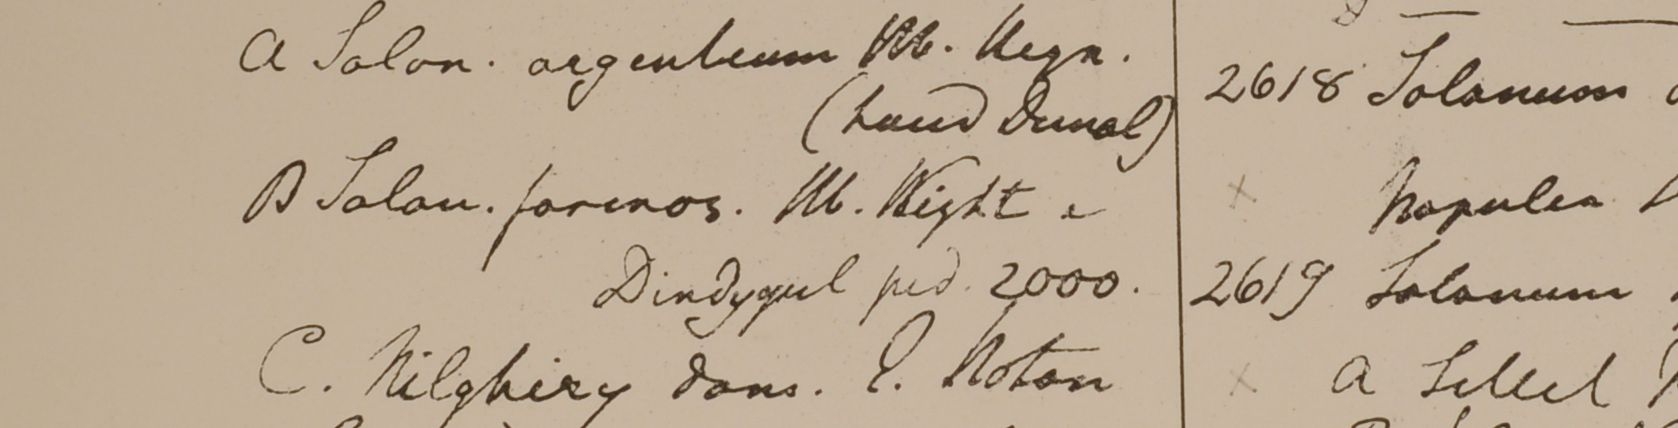 a Solan. argenteum Hb. Heyn.
(haud Dunal)
B Solan. farinos. Hb. Wight e
Dindygul ped. 2000.
C. Nilghiry dom. E. Noton
2618 Solanum
Napulea
2619 Solanum
a Sillet